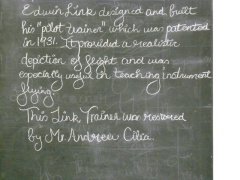 Edwin Link designed and built
his "pilot trainer" which was patented
in 1931. It provided a realistic
depiction of flight and was
especially useful in teaching instrument
flying.
This Link Trainer was restored
by Mr Andrew Cilia